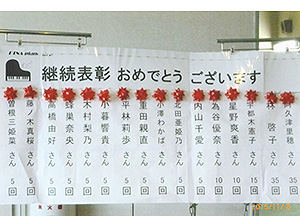 継続表彰 おめでとう ございます
久津里穂 さん 35回
啓子 さん 35回
宇都木憲子 さん 15回
星野爽香 さん 10回
為谷優奈 さん 10回
内山千愛 さん 5回
北田亜姫乃 さん 5回
小澤わかば さん 5回
重田親直 さん 5回
平林莉歩 さん 5回
小暮響貴 さん 5回
木村梨乃 さん 5回
蜂巣奈央 さん 5回
高橋由好 さん 5回
藤ノ木真桜 さん 5回
曽根三姫菜 さん 5回